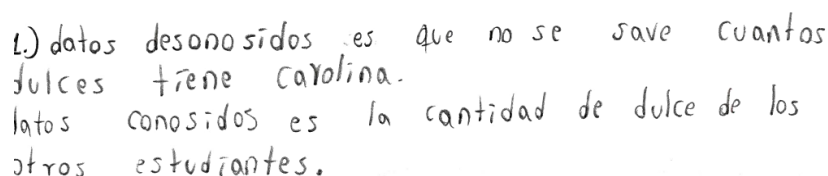 1.) datos desonosidos es que no se save cuantos
dulces tiene carolina.
datos conosidos es la cantidad de dulce de los
otros estudiantes.